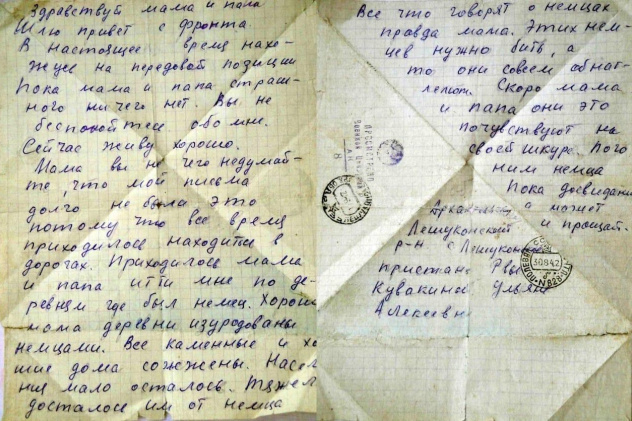 Здравствуй мама и папа
Шлю привет с фронта
В настоящее время нахо-
жусь на передовой позиции
Пока мама и папа страш-
ного ничего нет. Вы не
беспокойтесь обо мне.
Сейчас живу хорошо.
Мама вы не чего недумай-
те, что мой письма
долго не были это
потому что все время
приходилось находится в
дорогах. Приходилось мама
и папа итти мне по де-
ревням где был немец. Хорош
мама деревни изуродованы
немцами. Все каменные и хо
шие дома сожжены. Насел
ния мало осталось. Тяжел
досталось им от немца
Все что говорят о немцах
правда мама. Этих нем-
цев нужно бить, а
то они совсем обнаг-
леют. Скоро мама
и папа они это
почувствуют на
своей шкуре. Пого
ним немца
Пока досвидани
а может
и прощай.
ПРОСМОТРЕНО
Военной Цензурой
Архангельск
Лешуконский
р-н с Лешуконс
пристань
Кувакиной Ульяне
Алексеевне
30.8.42